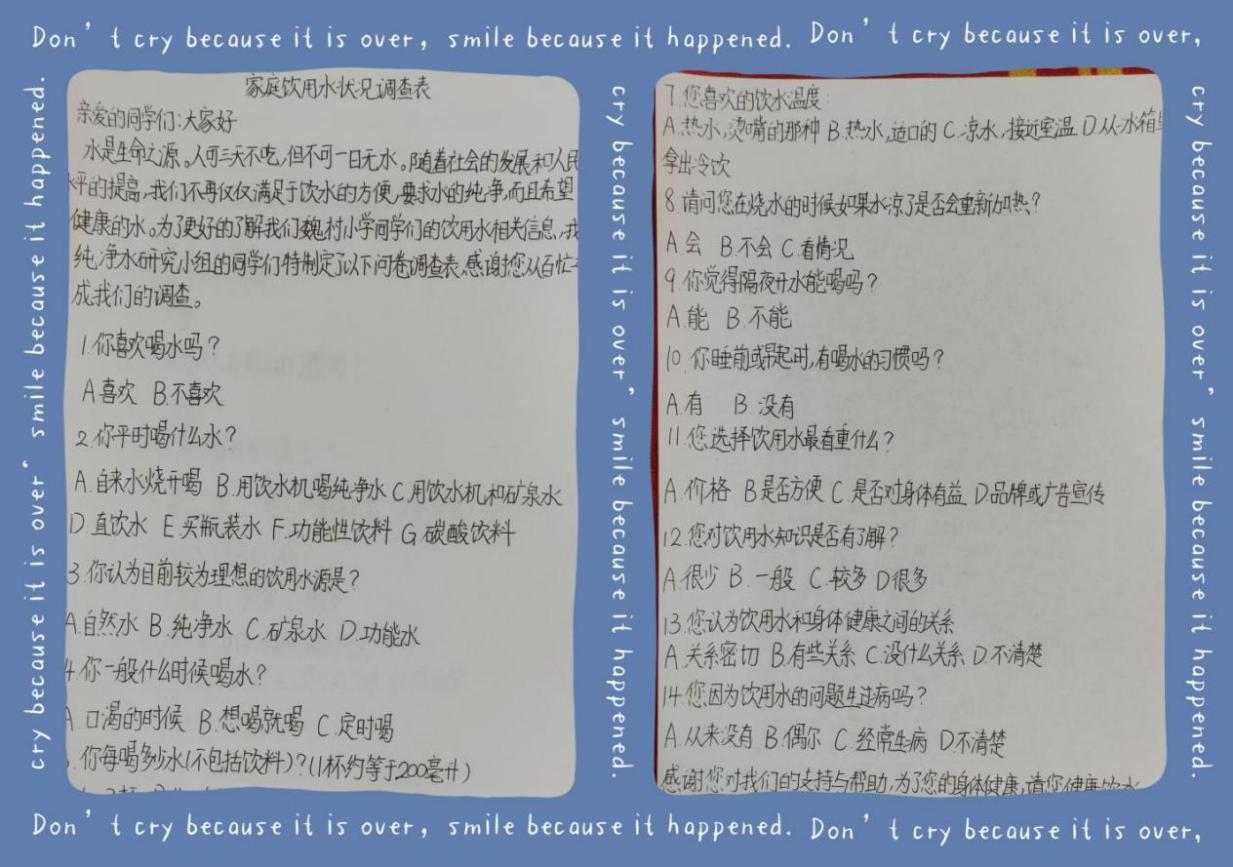 Don't cry because it is over, smile because it happened. Don't cry because it is over,
cry because it is over, smile because it happened.
家庭饮用水状况调查表
亲爱的同学们:大家好
水是生命之源。人可三天不吃,但不可一日无水。随着社会的发展和人民
水平的提高,我们不再仅仅满足于饮水的方便,要求水的纯净,而且希望
健康的水。为了更好的了解我们魏村小学同学们的饮用水相关信息,我
纯净水研究小组的同学们特制定了以下问卷调查表,感谢您从百忙
成我们的调查。
1.你喜欢喝水吗?
A喜欢 B.不喜欢
2.你平时喝什么水?
A.自来水烧开喝 B.用饮水机喝纯净水 C.用饮水机和矿泉水
D.直饮水 E.买瓶装水 F.功能性饮料 G.碳酸饮料
3.你认为目前较为理想的饮用水源是?
A.自然水 B.纯净水 C.矿泉水 D.功能水
4.你一般什么时候喝水?
A.口渴的时候 B.想喝就喝 C.定时喝
你每喝多少水(不包括饮料)?(1杯约等于200毫升)
cry because it is over, smile because it happened.
7.您喜欢的饮水温度:
A.热水,烫嘴的那种 B.热水,适口的 C.凉水,接近室温 D.从冰箱里
拿出冷饮
8.请问您在烧水的时候如果水凉了是否会重新加热?
A.会 B.不会 C.看情况
9.你觉得隔夜开水能喝吗?
A.能 B.不能
10.你睡前或早起时,有喝水的习惯吗?
A.有 B.没有
11.您选择饮用水最看重什么?
A.价格 B是否方便 C.是否对身体有益 D品牌或广告宣传
12.您对饮用水知识是否有了解?
A.很少 B.一般 C.较多 D很多
13.您认为饮用水和身体健康之间的关系
A.关系密切 B.有些关系 C.没什么关系 D.不清楚
14.您因为饮用水的问题生过病吗?
A.从来没有 B.偶尔 C.经常生病 D.不清楚
感谢您对我们的支持与帮助,为了您的身体健康,请您健康饮水
cry because it is over, smile because it happened.
Don't cry because it is over, smile because it happened. Don't cry because it is over,